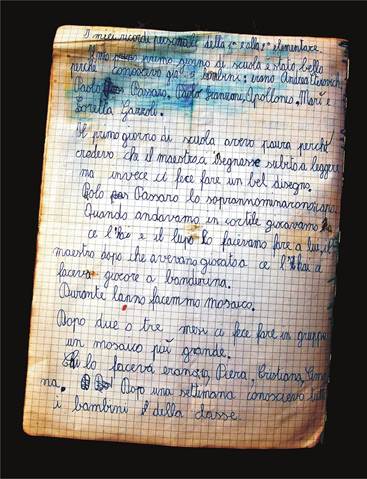 I miei ricordi personali della 1ª alla 2ª elementare.
Il mio primo giorno di scuola è stato bello
perché conoscevo già 5 bambini: erano Andrea
Paolo Passaro, Paolo Apollonio, Mari e
Lorella Garzoli.
Il primo giorno di scuola avevo paura perché
credevo che il maestro insegnasse subito a leggere
ma invece ci fece fare un bel disegno.
Polo Passaro lo soprannominarono papa.
Quando andavamo in cortile giocavamo a
ce l'hai e il lupo lo facevano fare a lui, il
maestro dopo che avevano giocato a ce l'hai ci
faceva giocare a bandierina.
Durante l'anno facemmo mosaico.
Dopo due o tre mesi ci fece fare in gruppo
un mosaico più grande.
Chi lo faceva erano, io, Piera, Cristiana,
na. Dopo una settimana conoscievo tutti
i bambini della classe.